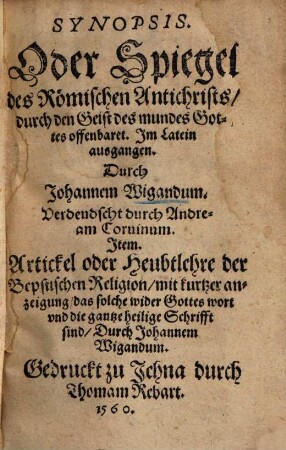 SYNOPSIS.
Oder Spiegel
des Römischen Antichrists/
durch den Geist des mundes Got-
tes offenbaret. Im Latein
ausgangen.
Durch
Johannem Wigandum.
Verdendscht durch Andre-
am Coruinum.
Item.
Artickel oder Heubtlehre der
Bepstischen Religion/ mit kurtzer an-
zeigung/ das solche wider Gottes wort
vnd die gantze heilige Schrifft
sind/ Durch Johannem
Wigandum.
Gedruckt zu Jehna durch
Thomam Rebart.
1560.